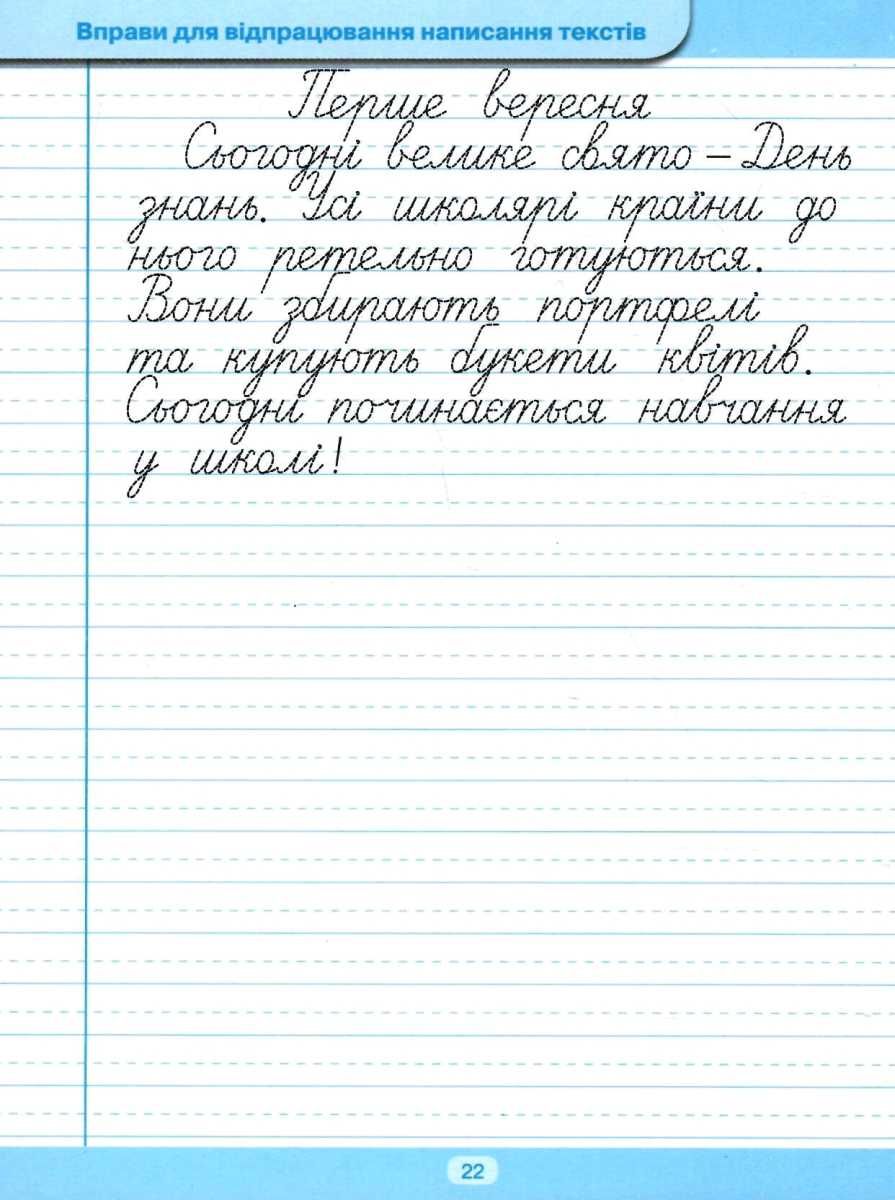 Вправи для відпрацювання написання текстів
Перше вересня
Сьогодні велике свято – День
знань. Усі школярі країни до
нього ретельно готуються.
Вони збирають портфелі
та купують букети квітів.
Сьогодні починається навчання
у школі!
22